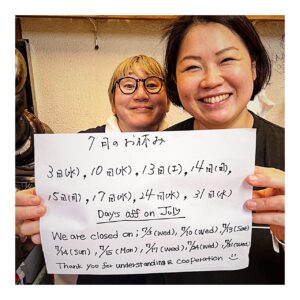 7月のお休み
3日(水), 10日(水), 13日(土), 14日(日),
15日(月), 17日(水), 24日(水), 31日(水)
Day's off on July
We are closed on ; 7/3 (wed), 7/10 (wed), 7/13 (Sat)
7/14 (Sun), 7/15 (Mon), 7/17 (wed), 7/24 (wed), 7/31 (wed)
Thank you for understanding & cooperation